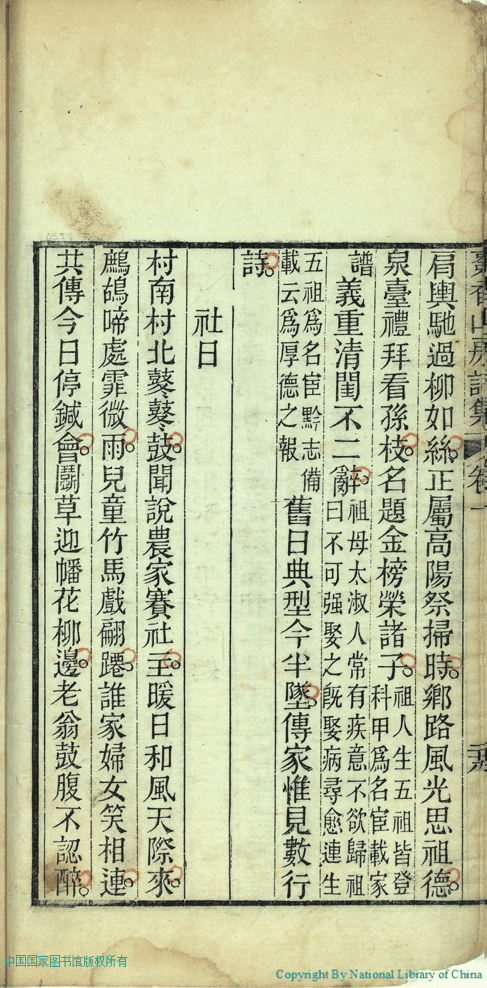 香山房詩集 卷一
肩輿馳過柳如絲。正屬高陽祭掃時。鄉路風光思祖德。
泉臺禮拜看孫枝。名題金榜榮諸子。祖人生五祖皆登科甲爲名宦載家
譜 義重清閨不二辭。祖母太淑人常有疾意不欲歸祖曰不可强娶之旣娶病尋愈連生
五祖爲名宦黔志備載云爲厚德之報 舊日典型今半墜。傳家惟見數行
詩。
社日
村南村北鼕鼕鼓。聞說農家賽社主。暖日和風天際來。
鷓鴣啼處霏微雨。兒童竹馬戲翩躚。誰家婦女笑相連。
共傳今日停鍼會。鬭草迎幡花柳邊。老翁鼓腹不認醉。
中国国家图书馆版权所有
Copyright By National Library of China